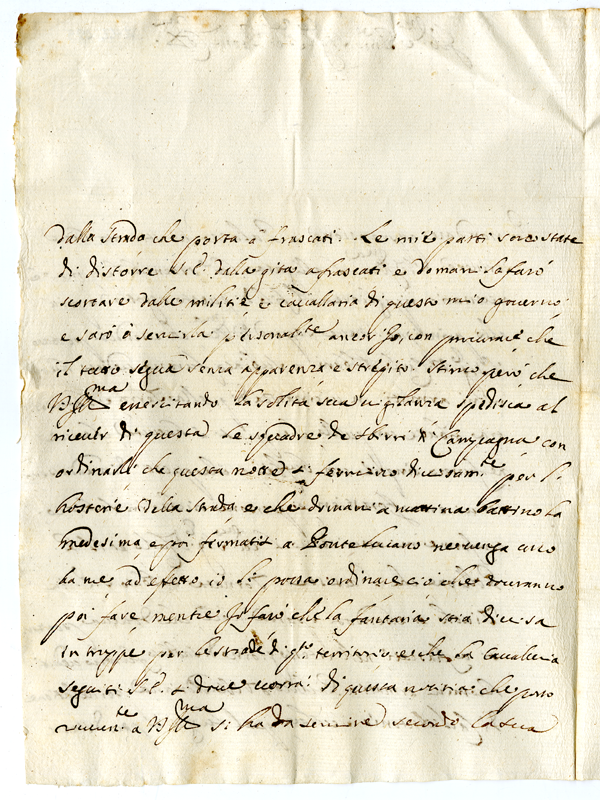 dalla strada che porta a frascati. Le mie parti sono state
di distorre S.E. dalla gita a frascati e domani la farò
scortare dalle militie e cavallaria di questo mio governo
e sarò a servirla p(er)sonal.te ancor Io, con procurare che
il tutto segua senza apparenza e strepito. Stimo però che
VS Ill.ma essercitando la solita sua vigilanza spedisca al
ricever di questa le squadre de sbirri di Campagna con
ordinarli che questa notte si fermino divisam.te per l'
hosterie della strada e che domani a mattina battino la
medesima, e poi fermatisi a Ponte Lucano ne venga uno
da me ad effetto, io li possa ordinare ciò che dovranno
poi fare mentre Io farò che la fantaria stia divisa
in truppe per le strade di q.to territorio e che la Cavalleria
seguiti S.E. dove vorrà. di questa notitia che porto
a VS Ill.ma si ha da servire secondo la sua